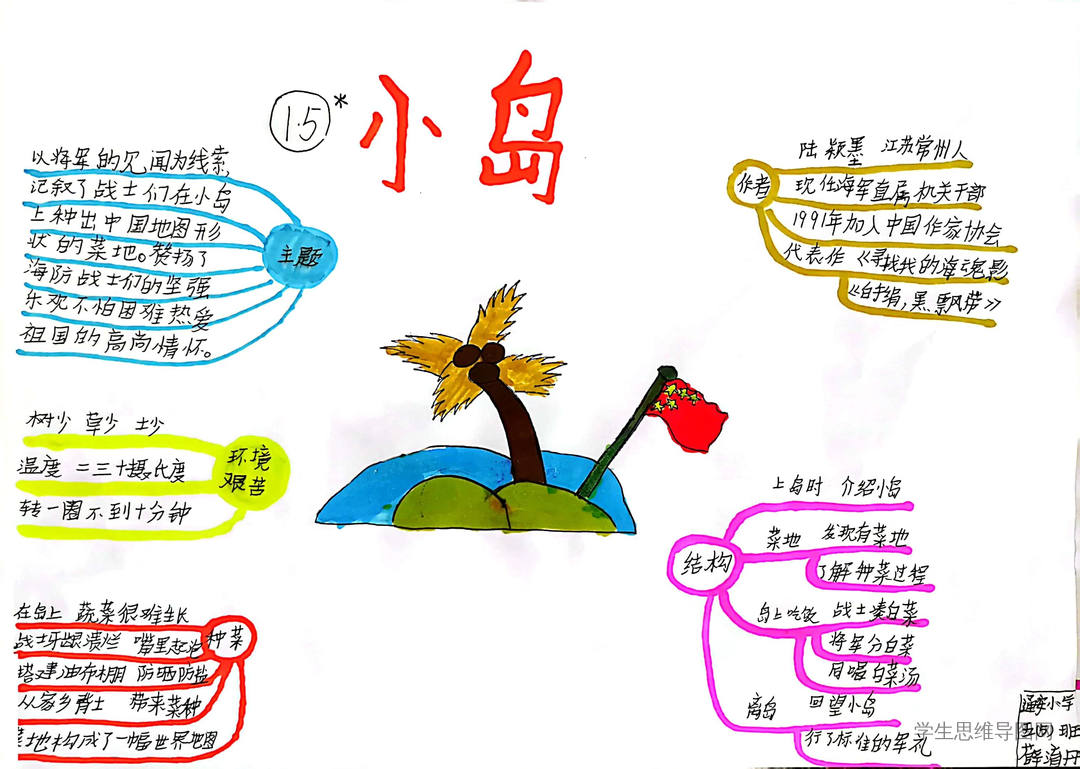 15*
小岛
以将军的见闻为线索,
记叙了战士们在小岛
上种出中国地图形
状的菜地。赞扬了
海防战士们的坚强
乐观不怕困难热爱
祖国的高尚情怀。
主题
作者
陆颖墨 江苏常州人
现任海军直属机关干部
1991年加入中国作家协会
代表作《寻找我的海魂影
《白手绢,黑飘带》
环境
艰苦
树少 草少 土少
温度 二三十摄氏度
转一圈不到十分钟
种菜
在岛上 蔬菜很难生长
战士牙龈溃烂 嘴里起泡
搭建油布棚 防晒防盐
从家乡背土 带来菜种
菜地构成了一幅世界地图
结构
上岛时 介绍小岛
菜地 发现有菜地
了解种菜过程
岛上吃饭 战士卖白菜
将军分白菜
同喝白菜汤
离岛 回望小岛
行了标准的军礼
小学
班
学生思维导图网